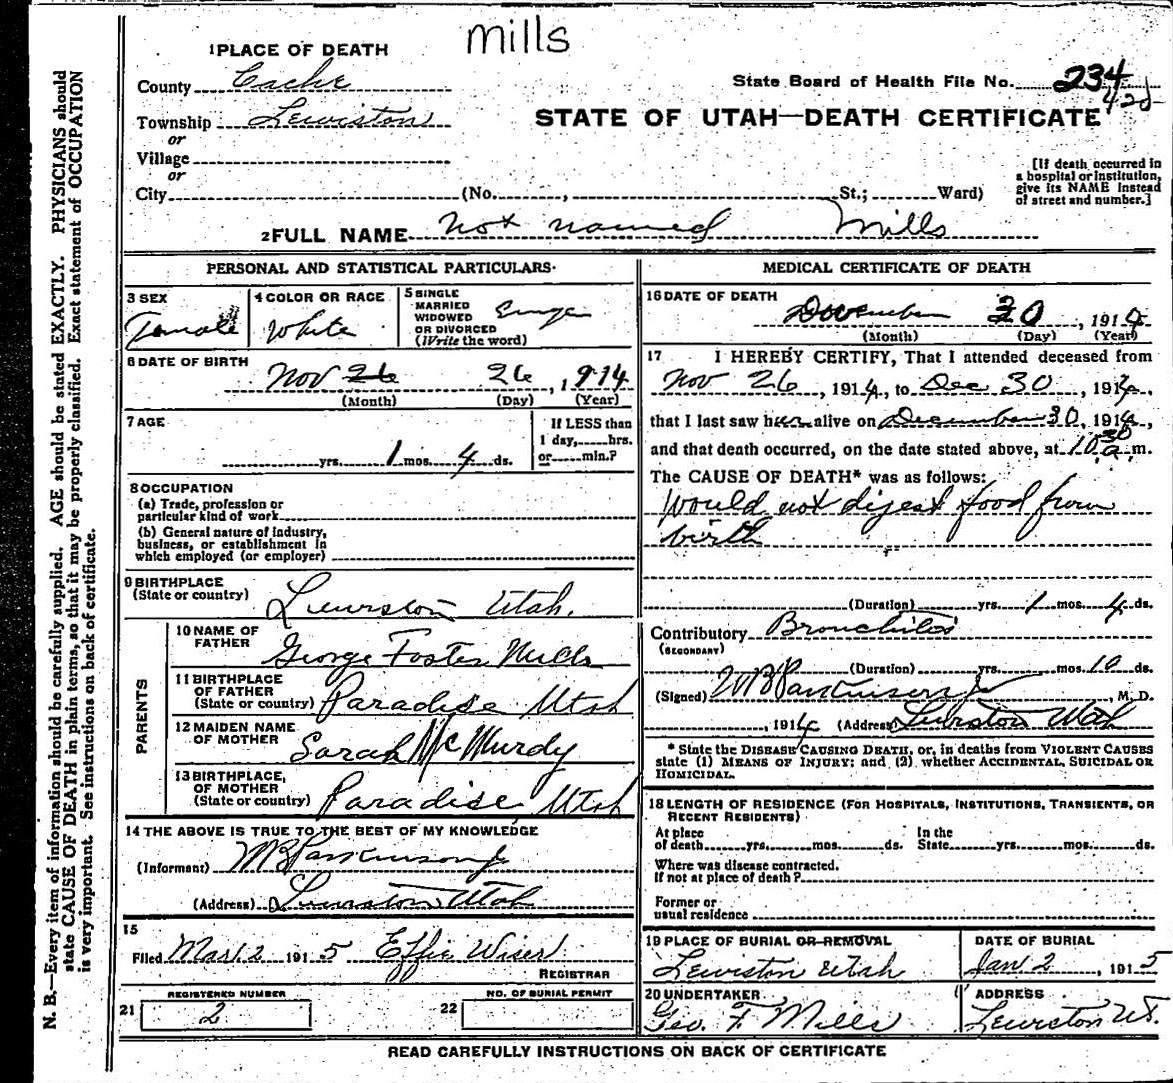 Mills
1 PLACE OF DEATH
County Cache
State Board of Health File No. 234
425
Township Lewiston
STATE OF UTAH—DEATH CERTIFICATE
or
Village
or
City (No. , St.; Ward)
[If death occurred in a hospital or institution, give its NAME instead of street and number.]
2 FULL NAME Not named Mills
PERSONAL AND STATISTICAL PARTICULARS
3 SEX
Female
4 COLOR OR RACE
White
5 SINGLE
MARRIED
WIDOWED
OR DIVORCED
(Write the word)
Single
6 DATE OF BIRTH
Nov 26 26, 1914
(Month) (Day) (Year)
7 AGE
yrs. 1 mos. 4 ds.
If LESS than
1 day, hrs.
or min.?
8 OCCUPATION
(a) Trade, profession or
particular kind of work
(b) General nature of industry,
business, or establishment in
which employed (or employer)
9 BIRTHPLACE
(State or country)
Lewiston Utah.
PARENTS
10 NAME OF
FATHER
George Foster Mills
11 BIRTHPLACE
OF FATHER
(State or country)
Paradise Utah
12 MAIDEN NAME
OF MOTHER
Sarah McMurdy
13 BIRTHPLACE,
OF MOTHER
(State or country)
Paradise Utah
14 THE ABOVE IS TRUE TO THE BEST OF MY KNOWLEDGE
(Informant) WB Parkinson Jr
(Address) Lewiston Utah
15
Filed Mar 2 1915 Effie Wiser
REGISTRAR
REGISTERED NUMBER
21 2
NO. OF BURIAL PERMIT
22
MEDICAL CERTIFICATE OF DEATH
16 DATE OF DEATH
December 30, 1914
(Month) (Day) (Year)
17 I HEREBY CERTIFY, That I attended deceased from
Nov 26, 1914, to Dec 30, 1914,
that I last saw her alive on December 30, 1914
and that death occurred, on the date stated above, at 10 30 a m.
The CAUSE OF DEATH* was as follows:
Would not digest food from
birth
(Duration) yrs. 1 mos. 4 ds.
Contributory Bronchitis
(SECONDARY)
(Duration) yrs. mos. 10 ds.
(Signed) WB Parkinson Jr, M. D.
, 1914 (Address) Lewiston Utah
* State the DISEASE CAUSING DEATH, or, in deaths from VIOLENT CAUSES
state (1) MEANS OF INJURY; and (2) whether ACCIDENTAL, SUICIDAL OR
HOMICIDAL.
18 LENGTH OF RESIDENCE (FOR HOSPITALS, INSTITUTIONS, TRANSIENTS, OR
RECENT RESIDENTS)
At place
of death yrs. mos. ds.
In the
State yrs. mos. ds.
Where was disease contracted.
If not at place of death?
Former or
usual residence
19 PLACE OF BURIAL OR REMOVAL
Lewiston Utah
DATE OF BURIAL
Jan 2, 1915
20 UNDERTAKER
Geo. F. Mills
ADDRESS
Lewiston Ut.
READ CAREFULLY INSTRUCTIONS ON BACK OF CERTIFICATE
N. B.—Every item of information should be carefully supplied. AGE should be stated EXACTLY. PHYSICIANS should
state CAUSE OF DEATH in plain terms, so that it may be properly classified. Exact statement of OCCUPATION
is very important. See instructions on back of certificate.